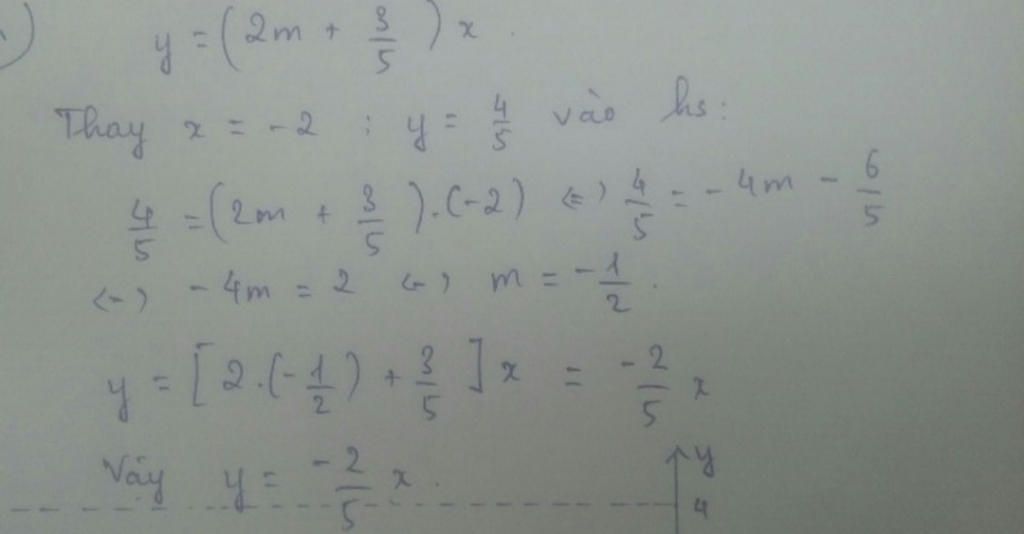 y = (2m + 3/5) x.
Thay x = -2 ; y = 4/5 vào hs:
4/5 = (2m + 3/5).(-2) <=> 4/5 = -4m - 6/5
<=> -4m = 2 <=> m = -1/2.
y = [2.(-1/2) + 3/5] x = -2/5 x
Vậy y = -2/5 x.
y
4